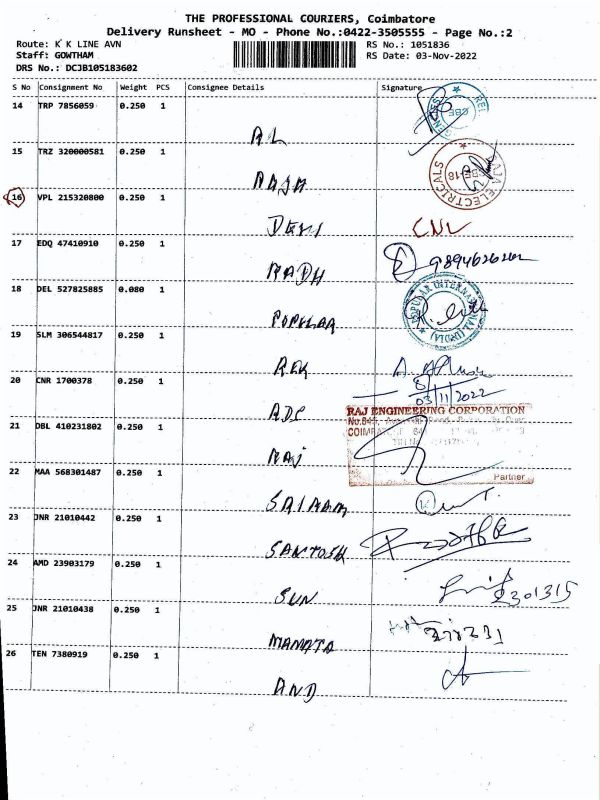 THE PROFESSIONAL COURIERS, Coimbatore
Delivery Runsheet - MO - Phone No.:0422-3505555 - Page No.:2
Route: K K LINE AVN
RS No.: 1051836
Staff: GOWTHAM
RS Date: 03-Nov-2022
DRS No.: DCJB105183602
S No Consignment No Weight PCS Consignee Details Signature
14 TRP 7856059 0.250 1
AL
15 TRZ 320000581 0.250 1
RAJA
RAJA ELECTRICALS
16 VPL 215320800 0.250 1
DEVI CNL
17 EDQ 47410910 0.250 1
RADH
18 DEL 527825885 0.080 1
POPULAR
POPULAR INTERNATIONAL (INDIA)
19 SLM 306544817 0.250 1
REK
20 CNR 1700378 0.250 1
03/11/2022
ADS
21 DBL 410231802 0.250 1
RAJ ENGINEERING CORPORATION
RAJ
Partner
22 MAA 568301487 0.250 1
SAIRAM
23 JNR 21010442 0.250 1
SANTOSH
24 AMD 23903179 0.250 1
SUN
25 JNR 21010438 0.250 1
MAMATA
26 TEN 7380919 0.250 1
AND